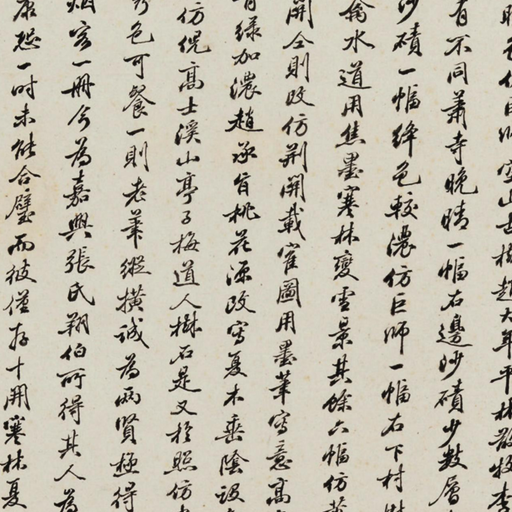 有不同蕭寺晚晴一幅右邊沙磧少數層
沙磧一幅絳色較濃仿巨師一幅右下村
水道用焦墨寒林變雪景其餘六幅仿
開仝則改仿荆開載寉圖用墨筆寫意高
綠加濃趙承旨桃花源改寫夏木垂陰設
仿倪高士溪山亭子梅道人樹石是又於照仿
色可餐一則老筆縱橫誠為兩賢極得
一冊今為嘉興張氏翔伯所得其人為
恐一時未能合璧而彼僅存十開寒林夏